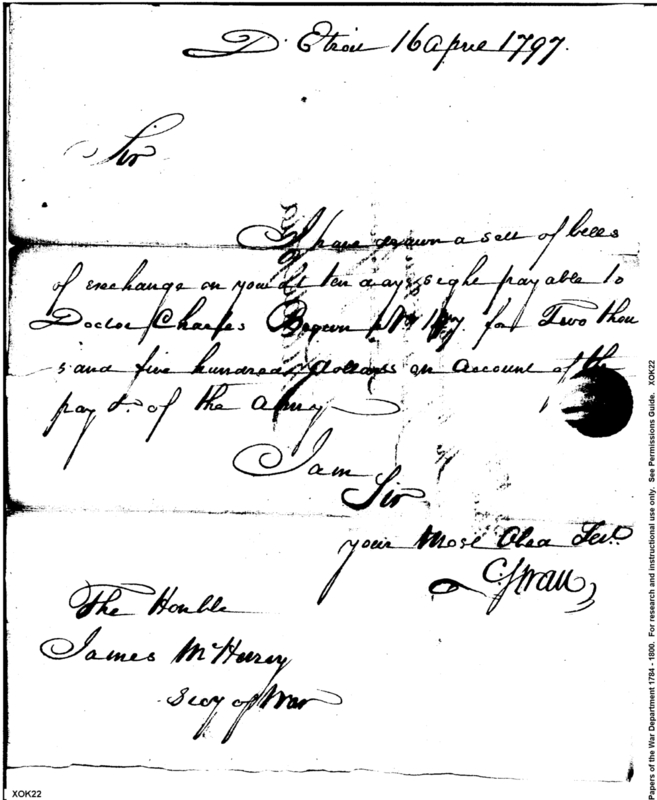 D. Etroit 16 April 1797.
Sir
I have drawn a sett of bills
of exchange on you at ten days sight payable to
Doctor Charles Brown for Two thou
sand five hundred dollars on account of the
pay &c. of the Army
I am
Sir
your Most Obed Servt.
C Swan
The Honble
James McHenry
Secy of War
Papers of the War Department 1784 - 1800. For research and instructional use only. See Permissions Guide. XOK22
XOK22